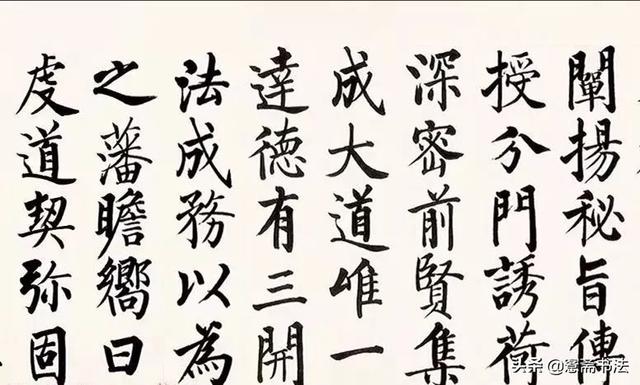 闡揚秘旨傳
授分門誘荷
深密前賢集
成大道唯一
達德有三開
法成務以為
之藩瞻嚮曰
虔道契弥固
头条 @斋书法